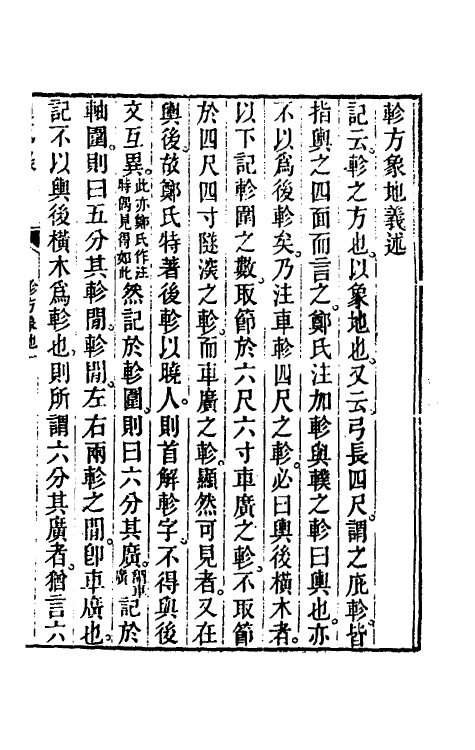 軫方象地義述
記云軫之方也以象地也又云弓長四尺謂之庇軫皆
指輿之四面而言之鄭氏注加軫與轐之軫曰輿也亦
不以爲後軫矣乃注車軫四尺之軫必曰輿後橫木者
以下記軫圍之數取節於六尺六寸車廣之軫不取節
於四尺四寸隧深之軫而車廣之軫顯然可見者又在
輿後故鄭氏特著後軫以曉人則首解軫字不得與後
文互異此亦鄭氏作注特偶見得如此然記於軫圍則曰六分其廣謂車廣記於
軸圍則曰五分其軫閒軫閒左右兩軫之閒卽車廣也
記不以輿後橫木爲軫也則所謂六分其廣者猶言六
軫方象地一